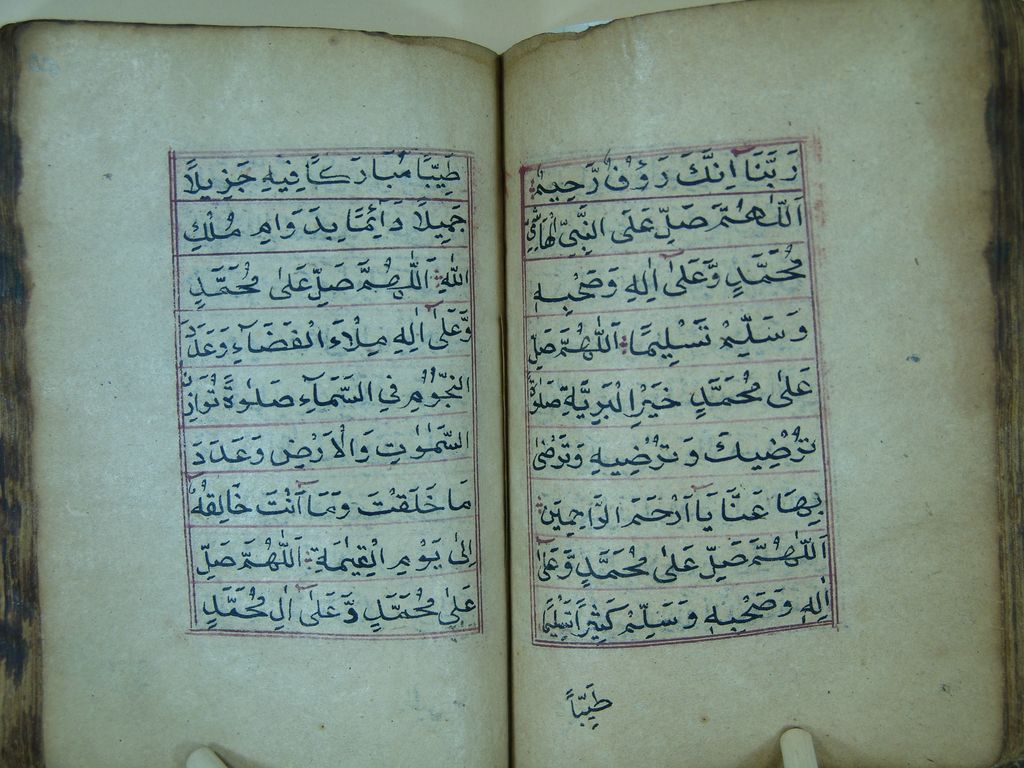 رَبَّنَا اِنَّكَ رَؤُفٌ رَّحِيمٌ
اَللّٰهُمَّ صَلِّ عَلَى النَّبِيِّ الْهَاشِمِيِّ
مُحَمَّدٍ وَّعَلٰٓى اٰلِهٖ وَصَحْبِهٖ
وَسَلِّمْ تَسْلِيمًا اَللّٰهُمَّ صَلِّ
عَلٰى مُحَمَّدٍ خَيْرِ الْبَرِيَّةِ صَلٰوةً
تُرْضِيكَ وَتُرْضِيهِ وَتَرْضٰى
بِهَا عَنَّا يَآ اَرْحَمَ الرَّاحِمِينَ
اَللّٰهُمَّ صَلِّ عَلٰى مُحَمَّدٍ وَّعَلٰٓى
اٰلِهٖ وَصَحْبِهٖ وَسَلِّمْ كَثِيْرًا تَسْلِيمًا
طَيِّبًا
طَيِّبًا مُّبَارَكًا فِيهِ جَزِيلًا
جَمِيلًا دَآئِمًا بِدَوَامِ مُلْكِ
اللّٰهِ اَللّٰهُمَّ صَلِّ عَلٰى مُحَمَّدٍ
وَّعَلٰٓى اٰلِهٖ مِلْاَءَ الْفَضَآءِ وَعَدَدَ
النُّجُوْمِ فِي السَّمَآءِ صَلٰوةً تُوَازِنُ
السَّمٰوٰتِ وَالْاَرْضِ وَعَدَدَ
مَا خَلَقْتَ وَمَآ اَنْتَ خَالِقُهٗ
اِلٰى يَوْمِ الْقِيٰمَةِ اَللّٰهُمَّ صَلِّ
عَلٰى مُحَمَّدٍ وَّعَلٰٓى اٰلِ مُحَمَّدٍ